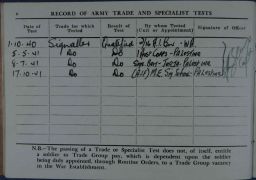 RECORD OF ARMY TRADE AND SPECIALIST TESTS
Date of Test
Trade for which Tested
Result of Test
By whom Tested (Unit or Appointment)
Signature of Officer
1.10.40 Signaller Qualified
5.5.41 Do Do Palestine
8.7.41 Do Do Palestine
17.10.41 Do Do (AIF) M.E. Sig School Palestine
N.B.—The passing of a Trade or Specialist Test does not, of itself, entitle
a soldier to Trade Group pay, which is dependent upon the soldier
being duly appointed, through Routine Orders, to a Trade Group vacancy
in the War Establishment.